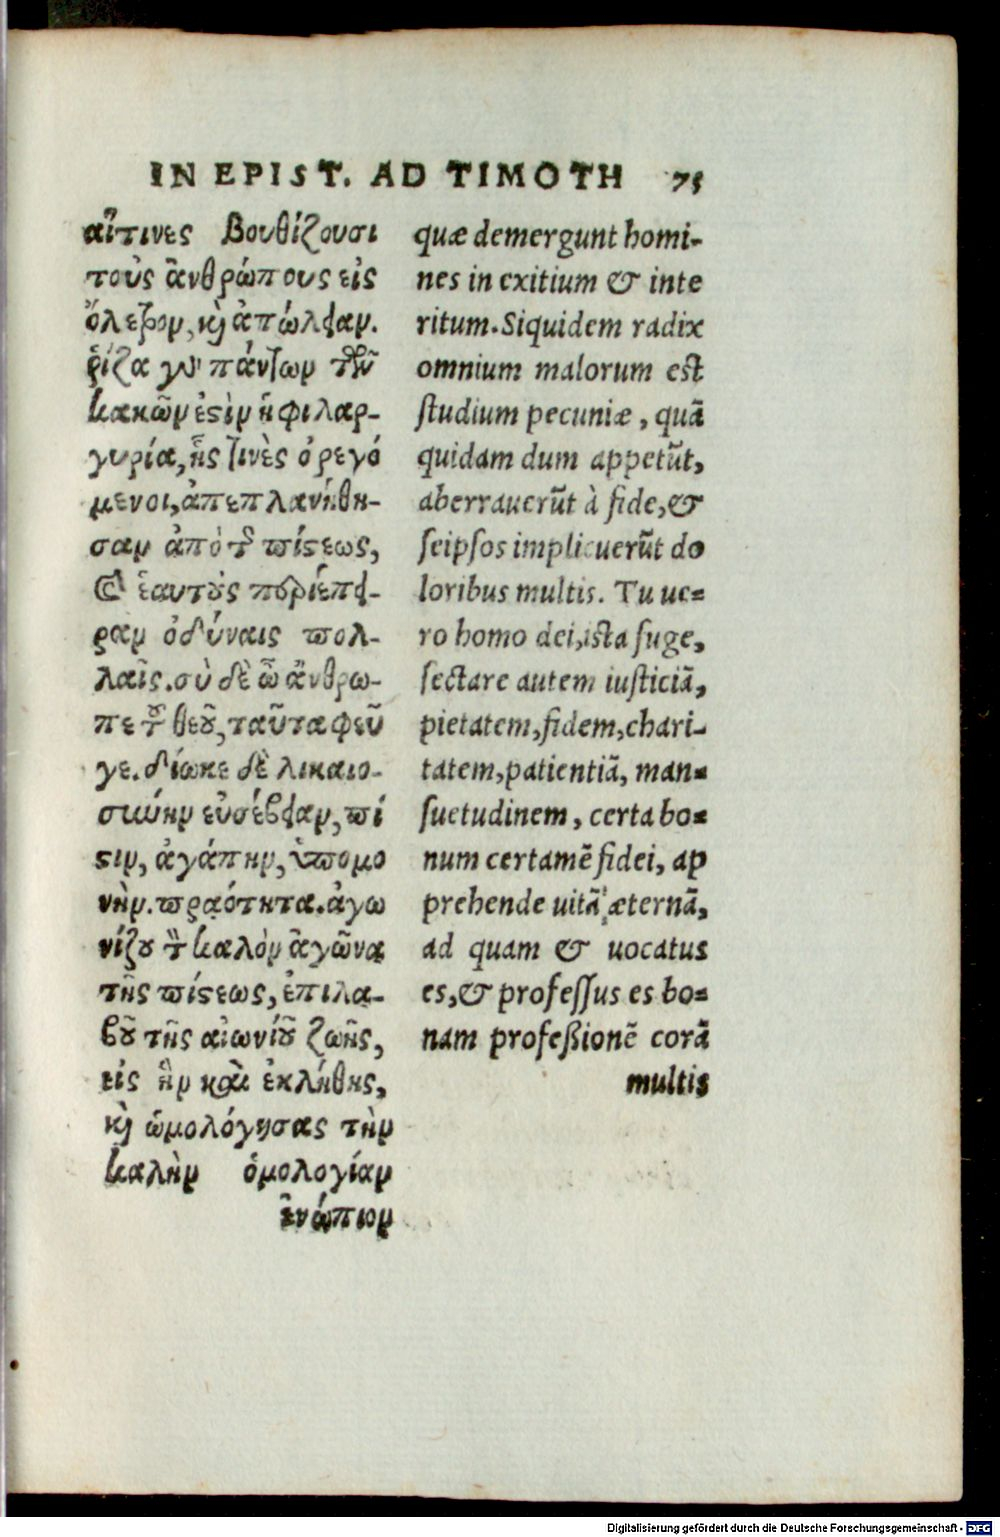 IN EPIST. AD TIMOTH 75
αἵτινες βουθίζουσι
τοὺς ἀνθρώπους εἰς
ὄλεθρον, καὶ ἀπώλειαν.
ῥίζα γὰρ πάντων τῶν
κακῶν ἐστὶν ἡ φιλαρ-
γυρία, ἧς τινὲς ὀρεγό
μενοι, ἀπεπλανήθη-
σαν ἀπὸ τῆς πίστεως,
καὶ ἑαυτοὺς περιέπει-
ραν ὀδύναις πολ-
λαῖς. σὺ δὲ ὦ ἄνθρω-
πε τοῦ θεοῦ, ταῦτα φεῦ
γε. δίωκε δὲ λικαιο-
σύνην εὐσέβειαν, πί
στιν, ἀγάπην, ὑπομο
νὴν. πραότητα. ἀγω
νίζου τὸν καλὸν ἀγῶνα
τῆς πίστεως, ἐπιλα-
βοῦ τῆς αἰωνίου ζωῆς,
εἰς ἣν καὶ ἐκλήθης,
καὶ ὡμολόγησας τὴν
καλὴν ὁμολογίαν
ἐνώπιον
quæ demergunt homi-
nes in exitium & inte
ritum. Siquidem radix
omnium malorum est
studium pecuniæ, quā
quidam dum appetūt,
aberrauerūt à fide, &
seipsos implicuerūt do
loribus multis. Tu ue-
ro homo dei, ista fuge,
sectare autem iusticiā,
pietatem, fidem, chari-
tatem, patientiā, man-
suetudinem, certa bo-
num certamē fidei, ap
prehende uitā æternā,
ad quam & uocatus
es, & professus es bo-
nam professionē corā
multis
Digitalisierung gefördert durch die Deutsche Forschungsgemeinschaft - DFG